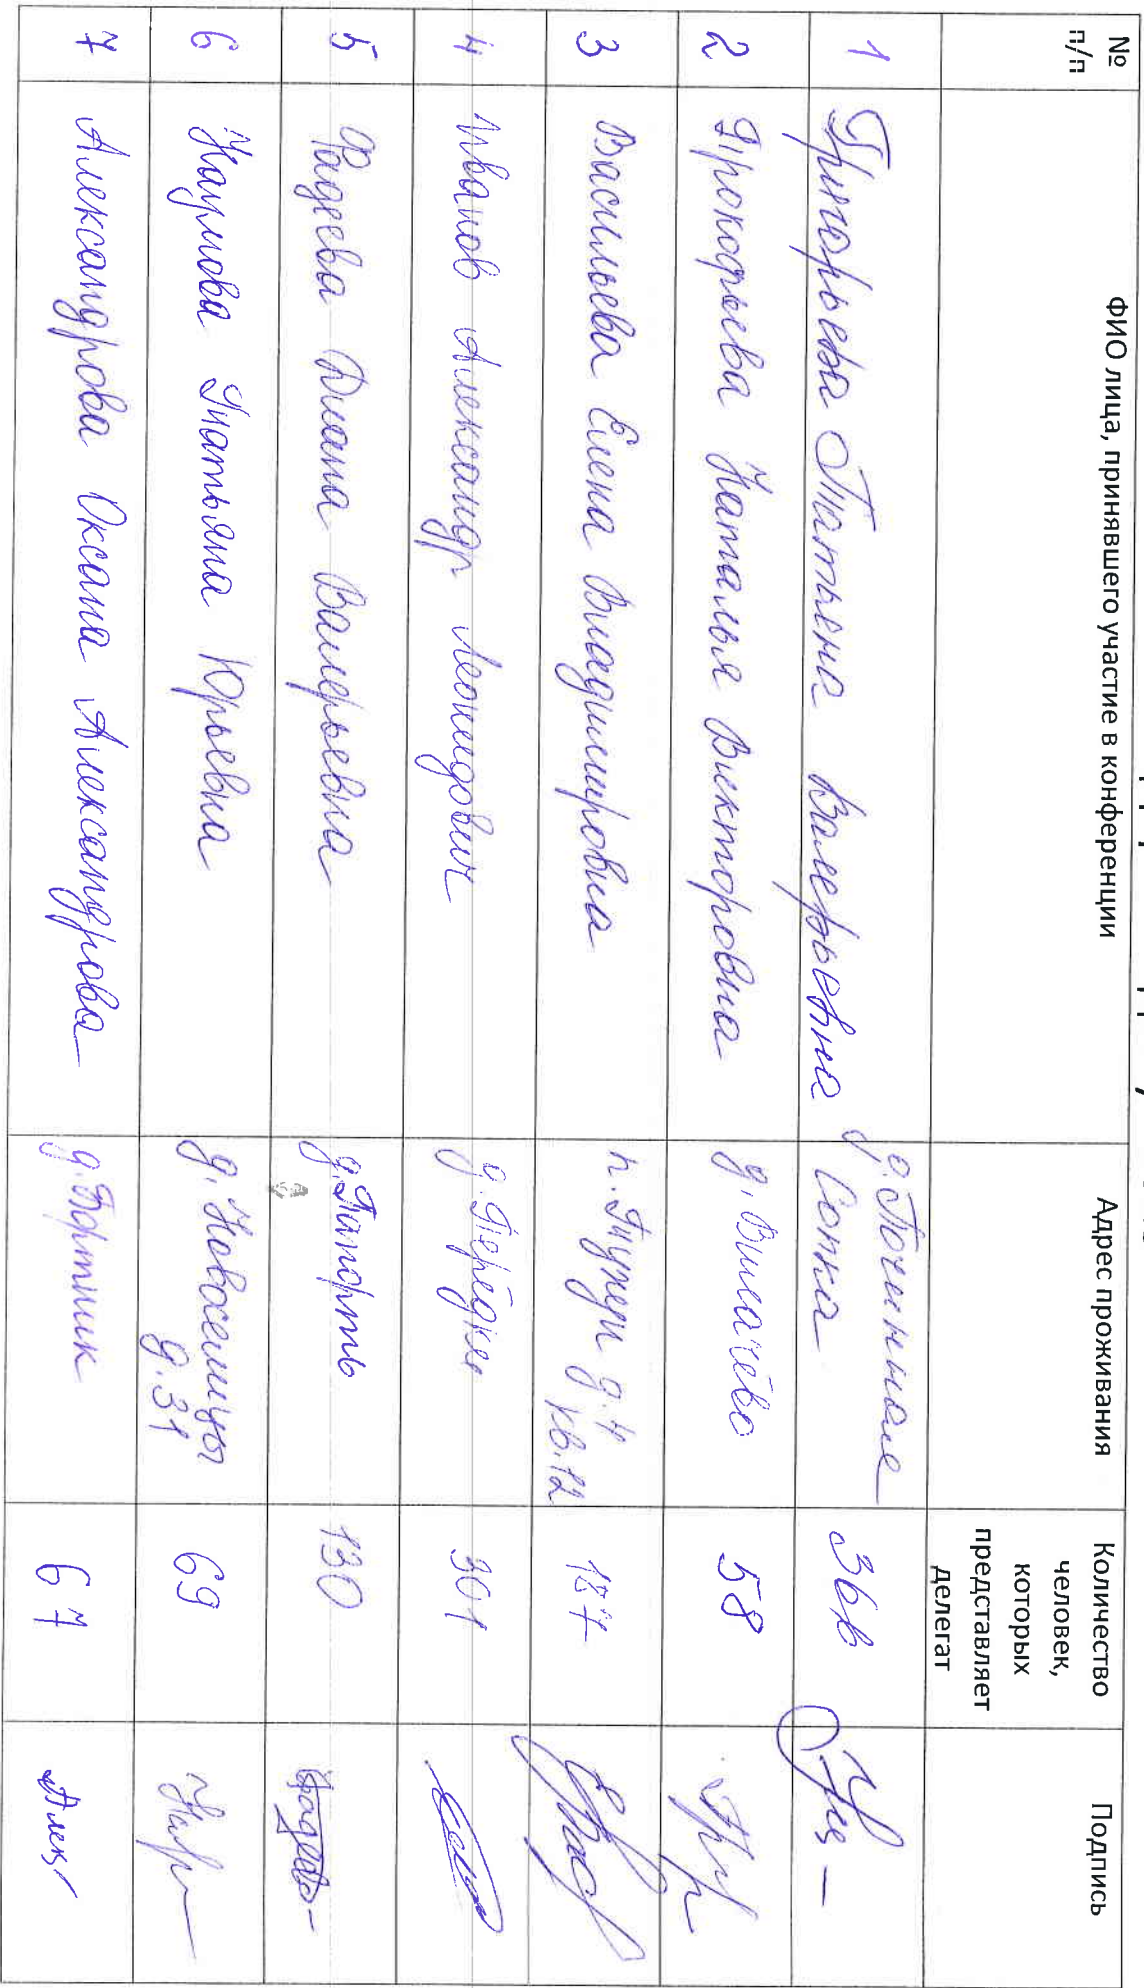 №
п/п
ФИО лица, принявшего участие в конференции
Адрес проживания
Количество
человек,
которых
представляет
делегат
Подпись
1 Григорьева Татьяна Валерьевна д. Починная
Сопка
2 Прокофьева Наталья Викторовна д. Вимачёво 58
3 Васильева Елена Владимировна п. Тулеги д. 4
кв. 12
4 Иванов Александр Леонидович д. Перёдки 301
5 Фадеева Диана Валерьевна д. Папорть 130
6 Наумова Татьяна Юрьевна д. Новоселицы 69
д. 31
7 Александрова Оксана Александрова д. Бортник 67